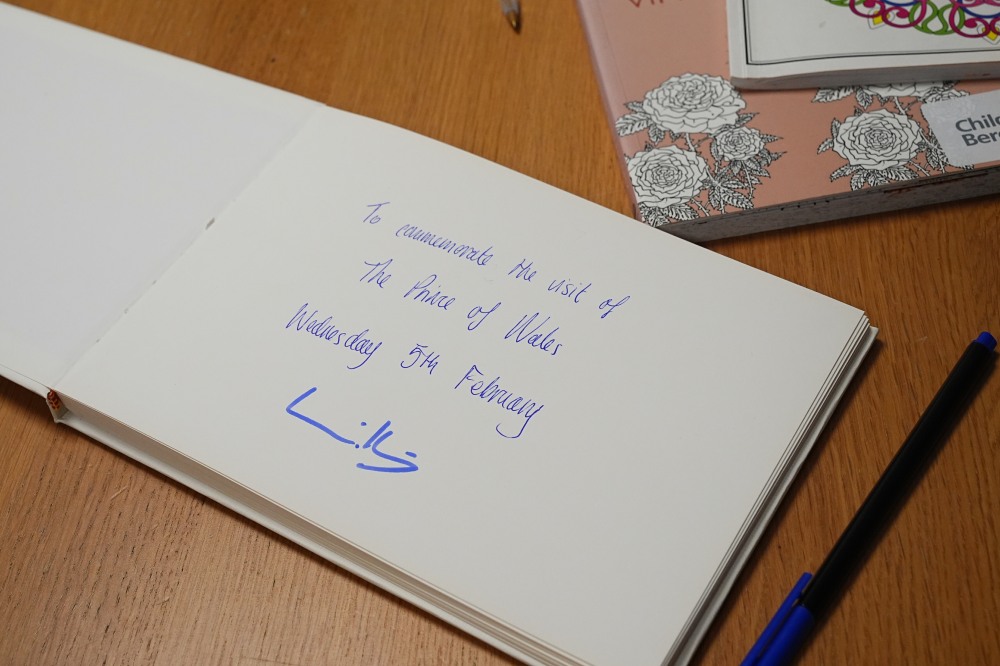 To commemorate the visit of
The Prince of Wales
Wednesday 5th February